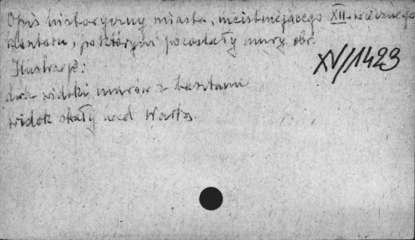 Opis historyczny miasta, nieistniejącego XII-wiecznego
klasztoru, po którym pozostały mury obr.
Ilustracje:
XV/1423
dwa widoki murów z basztami
widok skały nad Wartą.